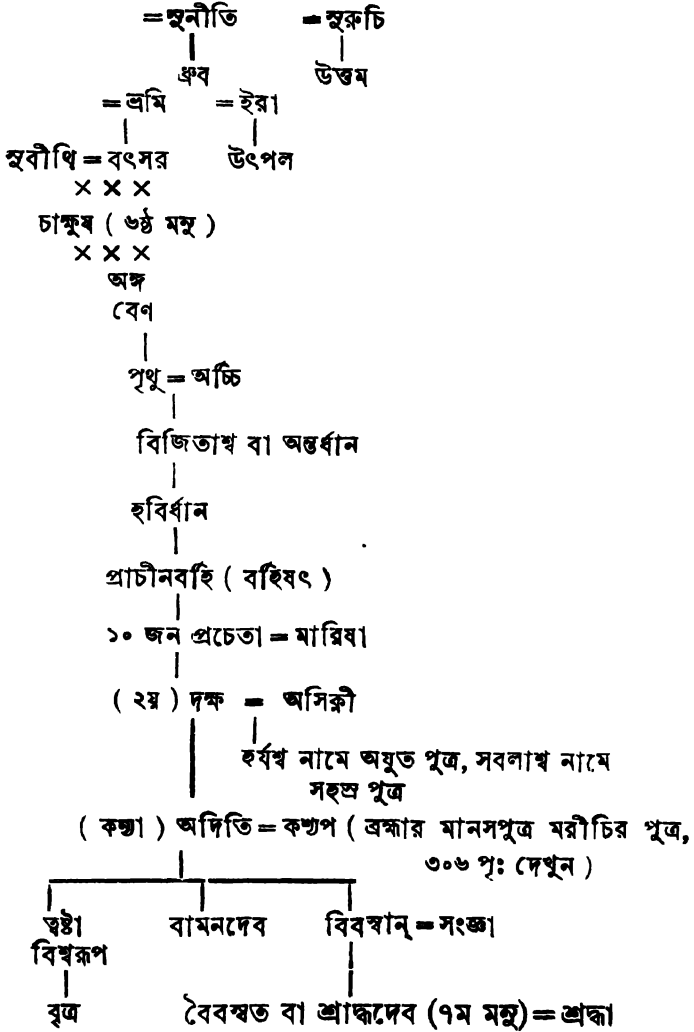 = সুনীতি = সুরুচি
ধ্রুব উত্তম
= ভ্রমি = ইরা
সুবীথি = বৎসর উৎপল
× × ×
চাক্ষুষ ( ৬ষ্ঠ মনু )
× × ×
অঙ্গ
বেণ
পৃথু = অর্চ্চি
বিজিতাশ্ব বা অন্তর্ধান
হবির্ধান
প্রাচীনবর্হি ( বর্হিষৎ )
১০ জন প্রচেতা = মারিষা
( ২য় ) দক্ষ = অসিক্লী
হর্যশ্ব নামে অযুত পুত্র, সবলাশ্ব নামে
সহস্র পুত্র
( কন্যা ) অদিতি = কশ্যপ ( ব্রহ্মার মানসপুত্র মরীচির পুত্র,
৩০৬ পৃঃ দেখুন )
ত্বষ্টা বামনদেব বিবস্বান্ = সংজ্ঞা
বিশ্বরূপ
বৃত্র বৈবস্বত বা শ্রাদ্ধদেব (৭ম মনু) = শ্রদ্ধা